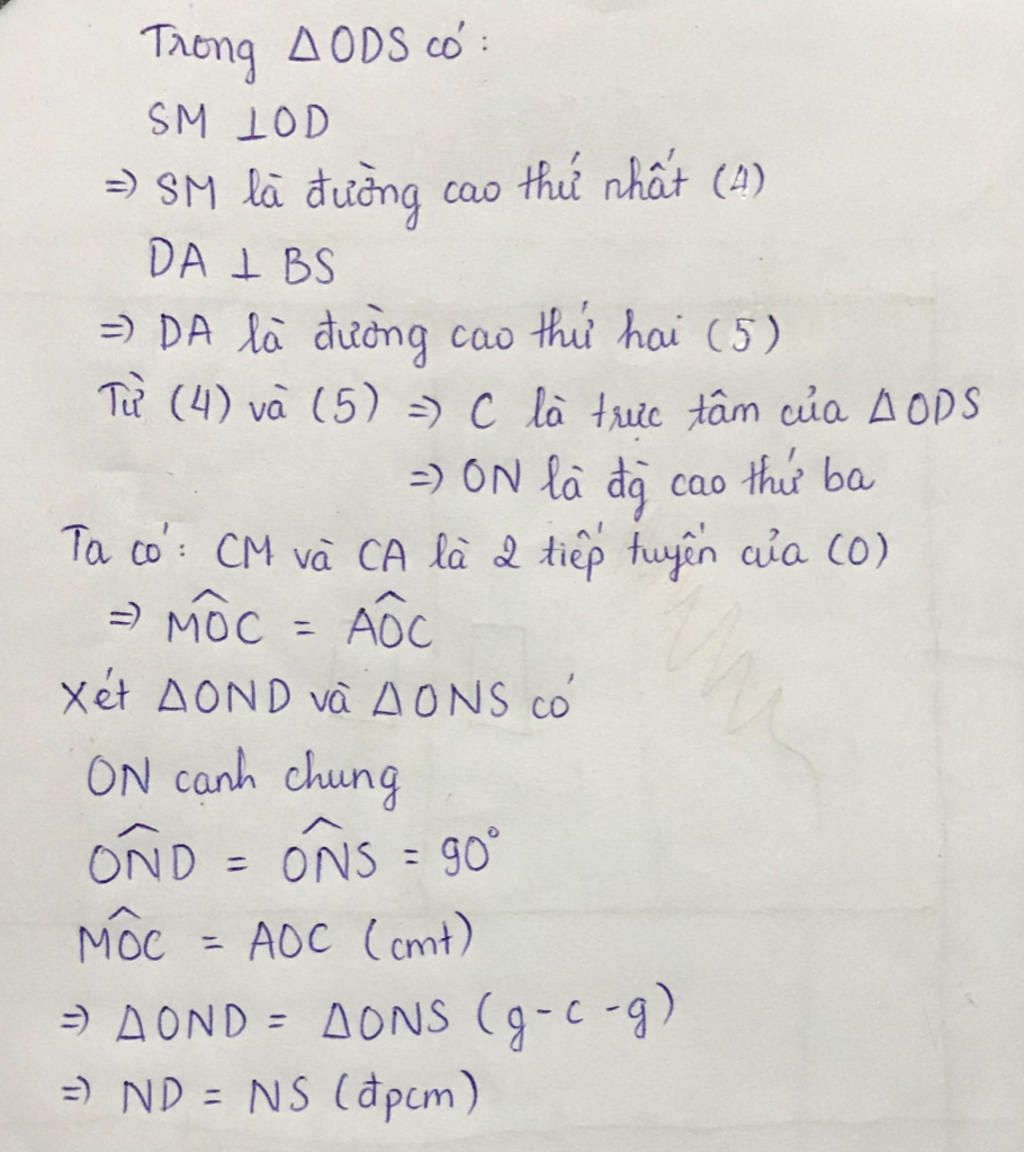 Trong ΔODS có:
SM ⊥OD
⇒ SM là đường cao thứ nhất (4)
DA ⊥ BS
⇒ DA là đường cao thứ hai (5)
Từ (4) và (5) ⇒ C là trực tâm của ΔODS
⇒ ON là đg̀ cao thứ ba
Ta có: CM và CA là 2 tiếp tuyến của (O)
⇒ MÔC = AÔC
Xét ΔOND và ΔONS có
ON cạnh chung
ON̂D = ON̂S = 90°
MÔC = AOC (cmt)
⇒ ΔOND = ΔONS (g-c-g)
⇒ ND = NS (đpcm)